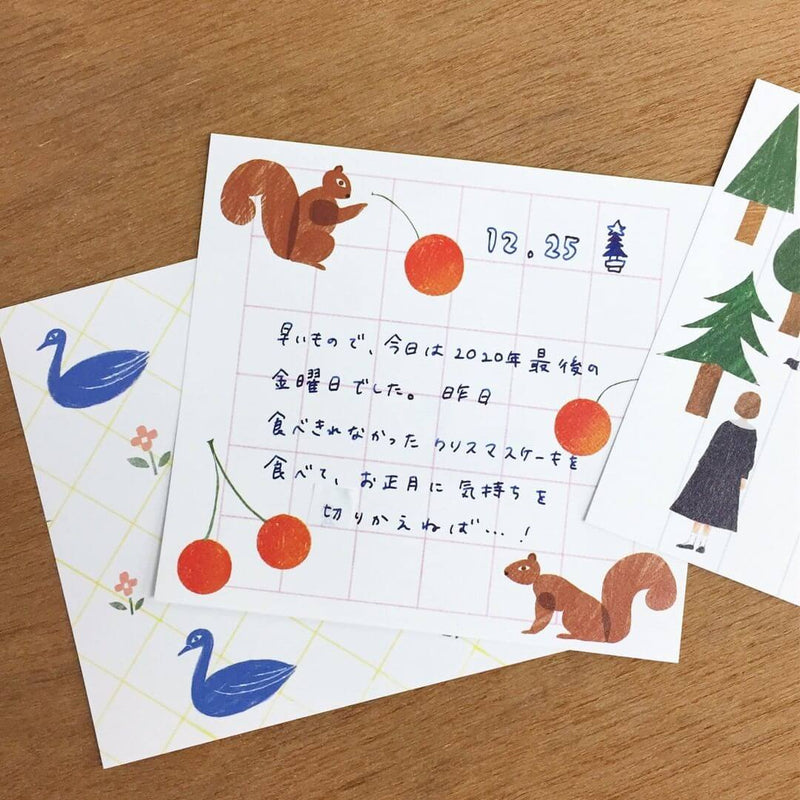 12.25
早いもので、今日は2020年最後の
金曜日でした。 昨日
食べきれなかったクリスマスケーキを
食べて、お正月に気持ちを
切りかえねば…!